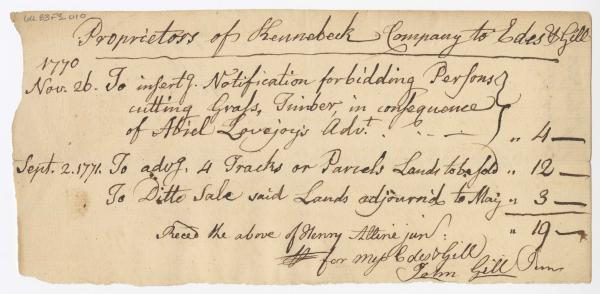 Proprietors of Kennebeck Company to Edes & Gill
1770
Nov. 26. To insertg. Notification forbidding Persons
cutting Grass, Timber, in consequence
of Abiel Lovejoy's Advt. " 4 —
Sept. 2. 1771. To advg. 4 Tracks or Parcels Lands to be sold " 12 —
To Ditto Sale said Lands adjourn'd to May " 3 —
" 19 —
Reced the above of Henry Alline junr.
for Mess Edes & Gill
John Gill Junr